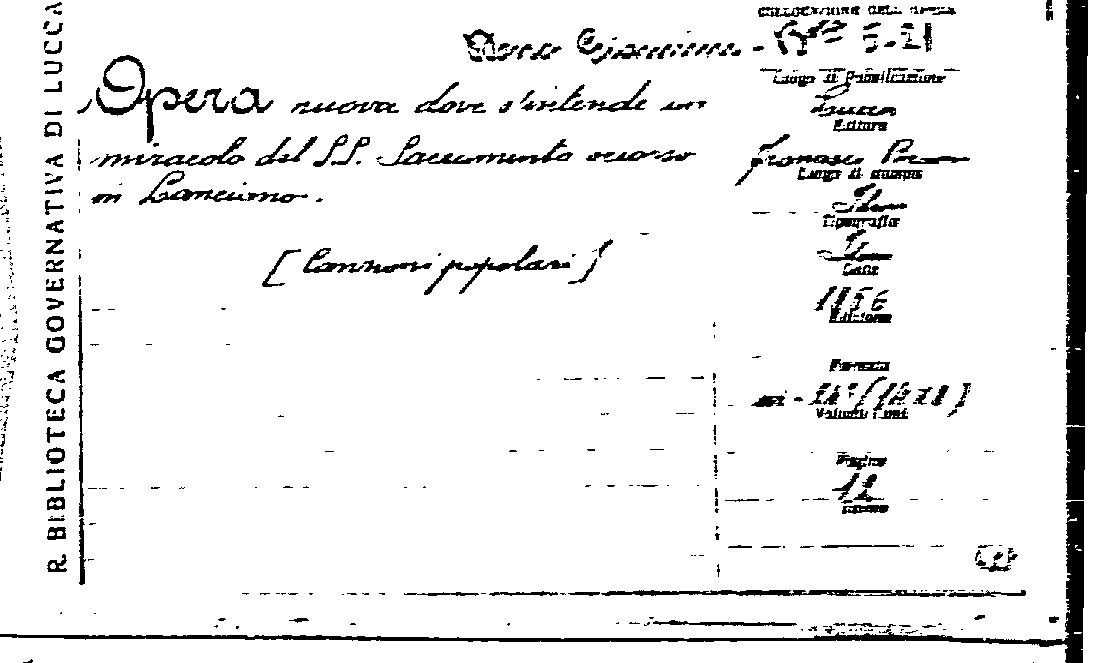 R. BIBLIOTECA GOVERNATIVA DI LUCCA
COLLOCAZIONE DELL'OPERA
Opera nuova dove s'intende un
miracolo del SS. Sacramento occorso
in Lanciano.
[Canzoni popolari]
Luogo di Pubblicazione
Lucca
Editore
Francesco
Luogo di stampa
Idem
Tipografia
Idem
Data
1856
Edizione
Formato
Volumi
Pagine
12